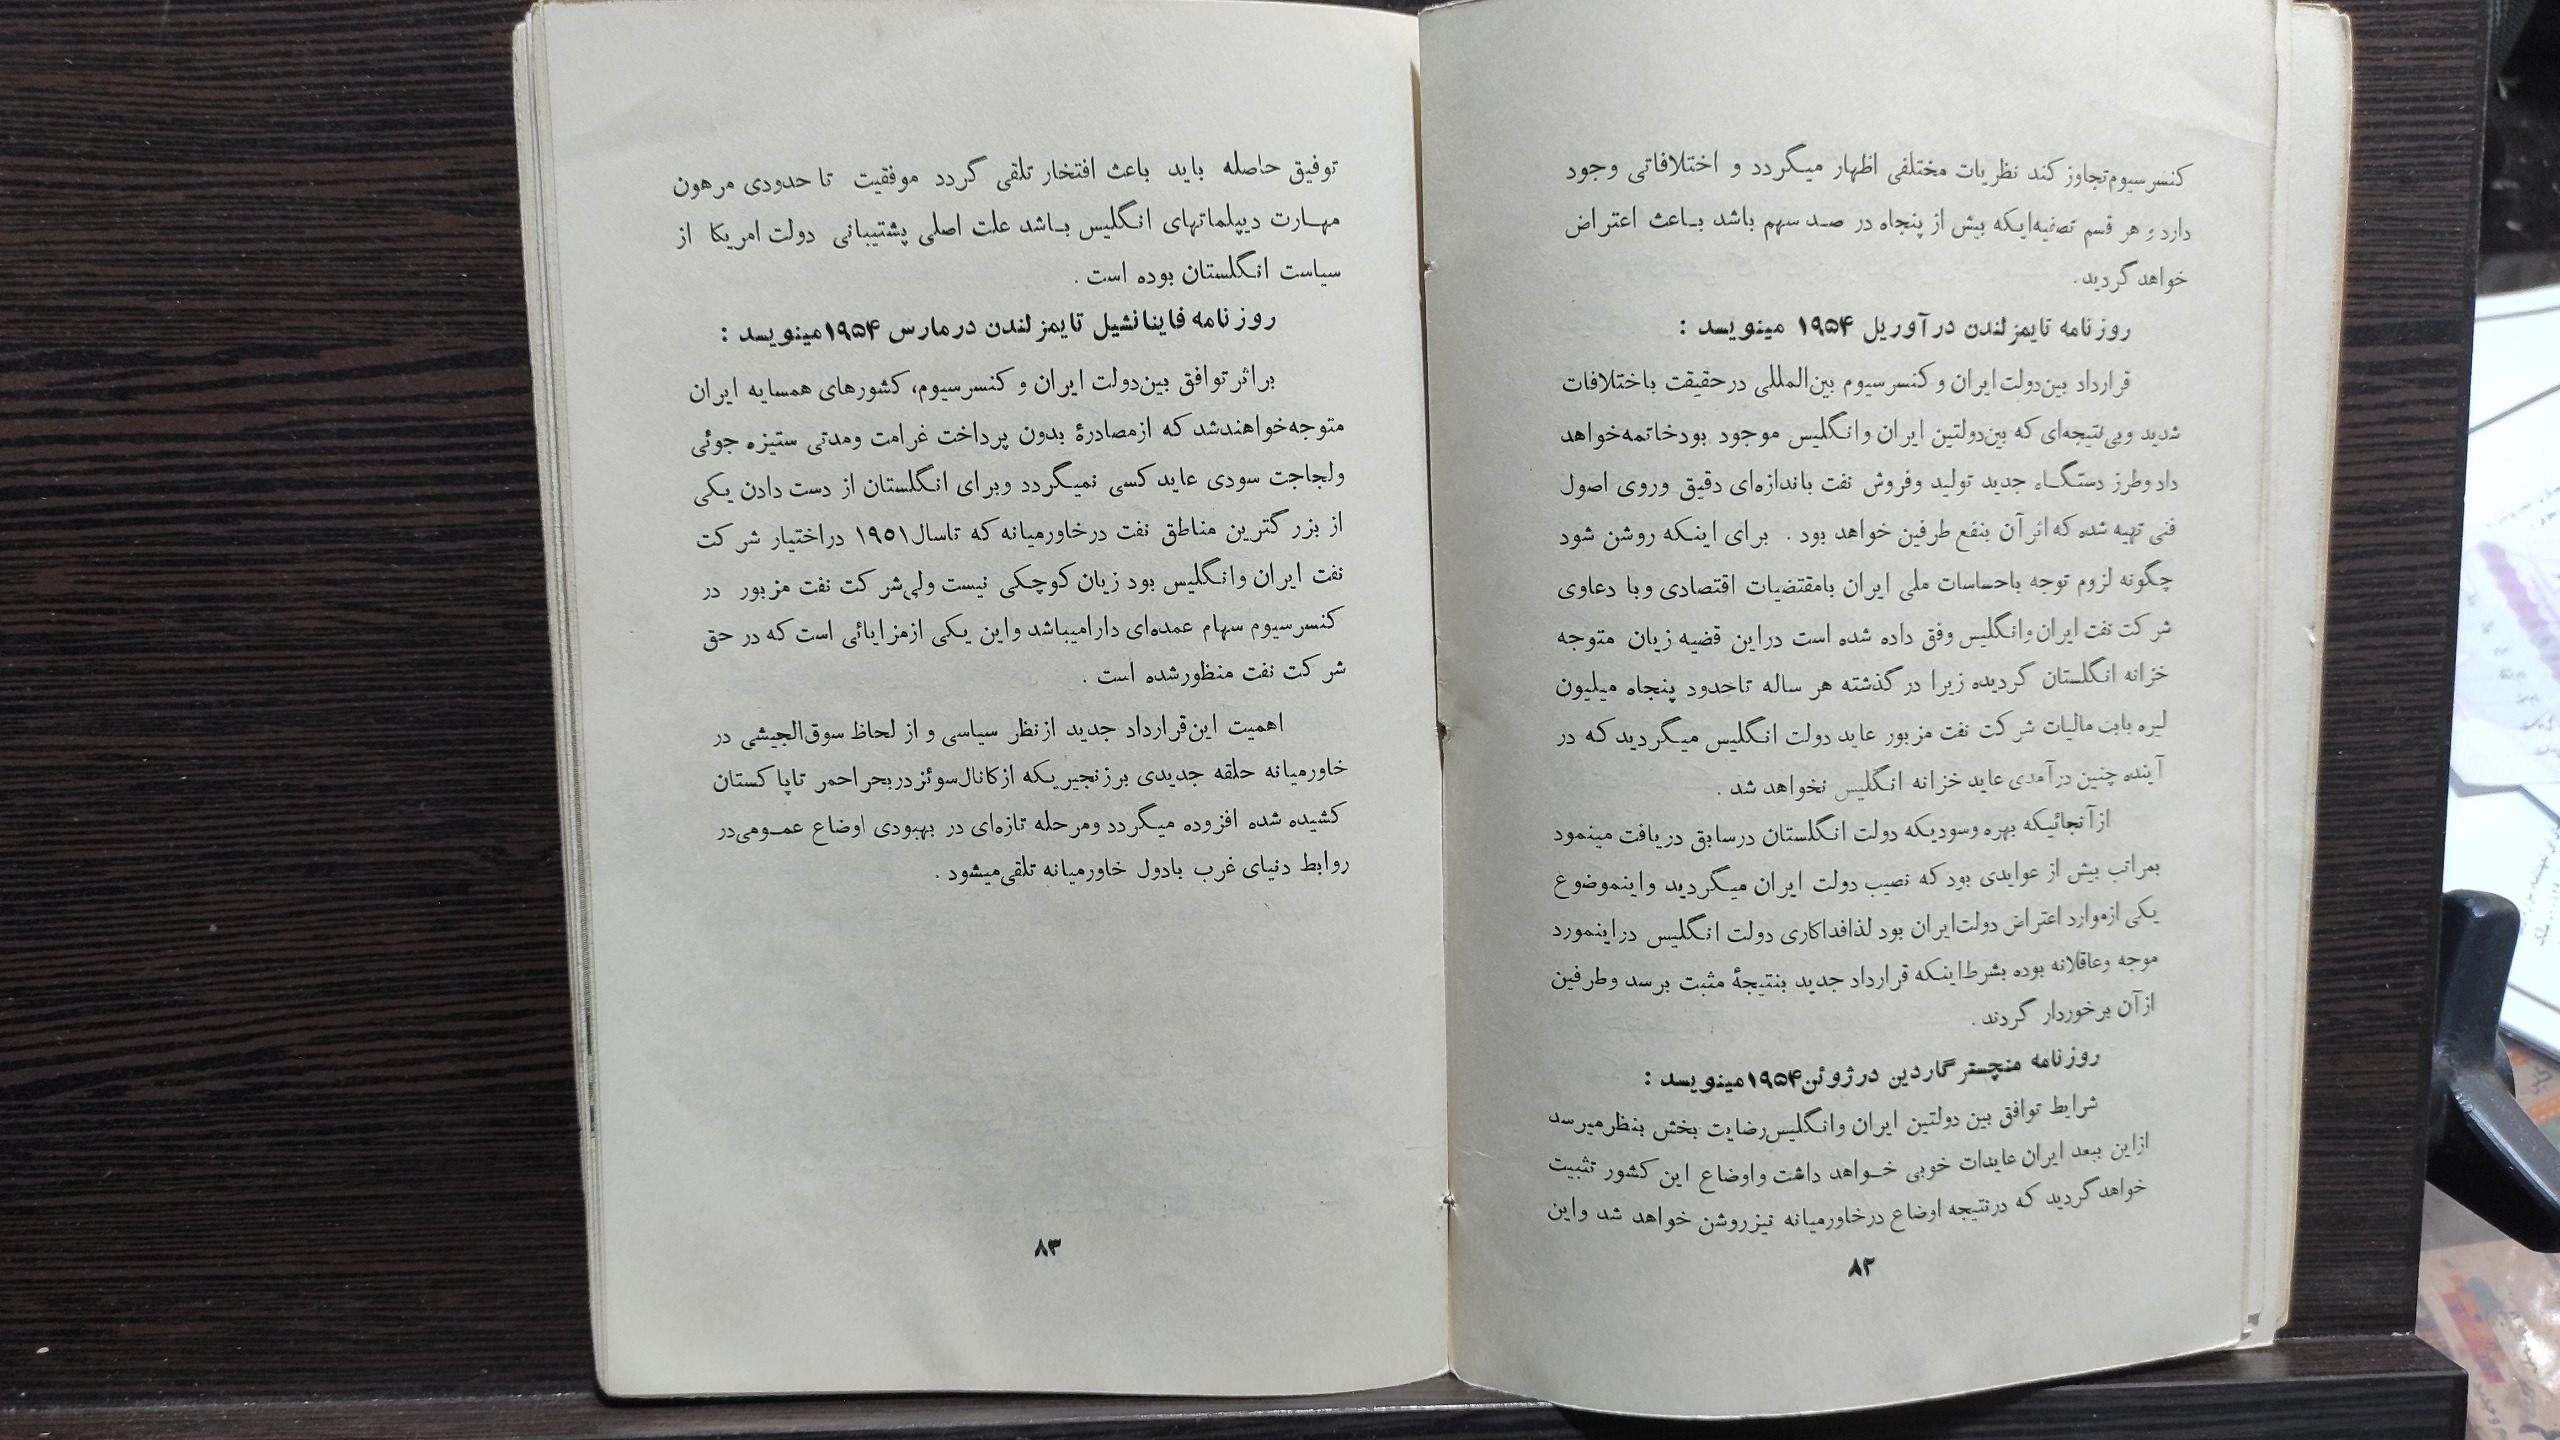 کنسرسیوم تجاوز کند نظریات مختلفی اظهار میگردد و اختلافاتی وجود
دارد و هر قسم تصفیه‌ایکه بیش از پنجاه در صد سهم باشد باعث اعتراض
خواهد گردید.
روزنامه تایمز لندن در آوریل ۱۹۵۴ مینویسد :
قرارداد بین‌دولت ایران و کنسرسیوم بین‌المللی درحقیقت باختلافات
شدید وبی‌نتیجه‌ای که بین‌دولتین ایران وانگلیس موجود بودخاتمه‌خواهد
داد وطرز دستگاه جدید تولید وفروش نفت باندازه‌ای دقیق وروی اصول
فنی تهیه شده که اثر آن بنفع طرفین خواهد بود . برای اینکه روشن شود
چگونه لزوم توجه باحساسات ملی ایران بامقتضیات اقتصادی وبا دعاوی
شرکت نفت ایران وانگلیس وفق داده شده است دراین قضیه زیان متوجه
خزانه انگلستان گردیده زیرا در گذشته هر ساله تاحدود پنجاه میلیون
لیره بابت مالیات شرکت نفت مزبور عاید دولت انگلیس میگردید که در
آینده چنین درآمدی عاید خزانه انگلیس نخواهد شد .
ازآنجائیکه بهره وسودیکه دولت انگلستان درسابق دریافت مینمود
بمراتب بیش از عوایدی بود که نصیب دولت ایران میگردید واینموضوع
یکی ازموارد اعتراض دولت‌ایران بود لذافداکاری دولت انگلیس دراینمورد
موجه وعاقلانه بوده بشرط‌اینکه قرارداد جدید بنتیجهٔ مثبت برسد وطرفین
ازآن برخوردار گردند .
روزنامه منچستر گاردین درژوئن۱۹۵۴مینویسد :
شرایط توافق بین دولتین ایران وانگلیس‌رضایت بخش بنظرمیرسد
ازاین ببعد ایران عایدات خوبی خواهد داشت واوضاع این کشور تثبیت
خواهدگردید که درنتیجه اوضاع درخاورمیانه نیزروشن خواهد شد واین
۸۲
توفیق حاصله باید باعث افتخار تلقی گردد موفقیت تا حدودی مرهون
مهارت دیپلماتهای انگلیس باشد علت اصلی پشتیبانی دولت امریکا از
سیاست انگلستان بوده است .
روزنامه فاینانشیل تایمز لندن درمارس ۱۹۵۴مینویسد :
براثر توافق بین‌دولت ایران و کنسرسیوم، کشورهای همسایه ایران
متوجه‌خواهندشد که ازمصادرهٔ بدون پرداخت غرامت ومدتی ستیزه جوئی
ولجاجت سودی عاید کسی نمیگردد وبرای انگلستان از دست دادن یکی
از بزرگترین مناطق نفت درخاورمیانه که تاسال۱۹۵۱ دراختیار شرکت
نفت ایران وانگلیس بود زیان کوچکی نیست ولی‌شرکت نفت مزبور در
کنسرسیوم سهام عمده‌ای دارامیباشد واین یکی ازمزایائی است که در حق
شرکت نفت منظورشده است .
اهمیت این‌قرارداد جدید ازنظر سیاسی و از لحاظ سوق‌الجیشی در
خاورمیانه حلقه جدیدی برزنجیریکه ازکانال‌سوئزدربحراحمر تاپاکستان
کشیده شده افزوده میگردد ومرحله تازه‌ای در بهبودی اوضاع عمومی‌در
روابط دنیای غرب بادول خاورمیانه تلقی‌میشود .
۸۳